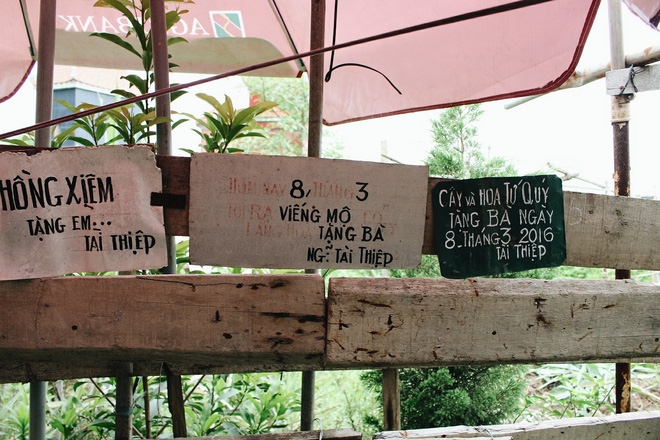 AGRIBANK
HỒNG XIÊM
TẶNG EM...
TÀI THIỆP
HÔM NAY 8, THÁNG 3
VIẾNG MỘ
TẶNG BÀ
NG~ TÀI THIỆP
CÂY VÀ HOA TỨ QUÝ
TẶNG BÀ NGAY
8. THÁNG 3. 2016
TÀI THIỆP